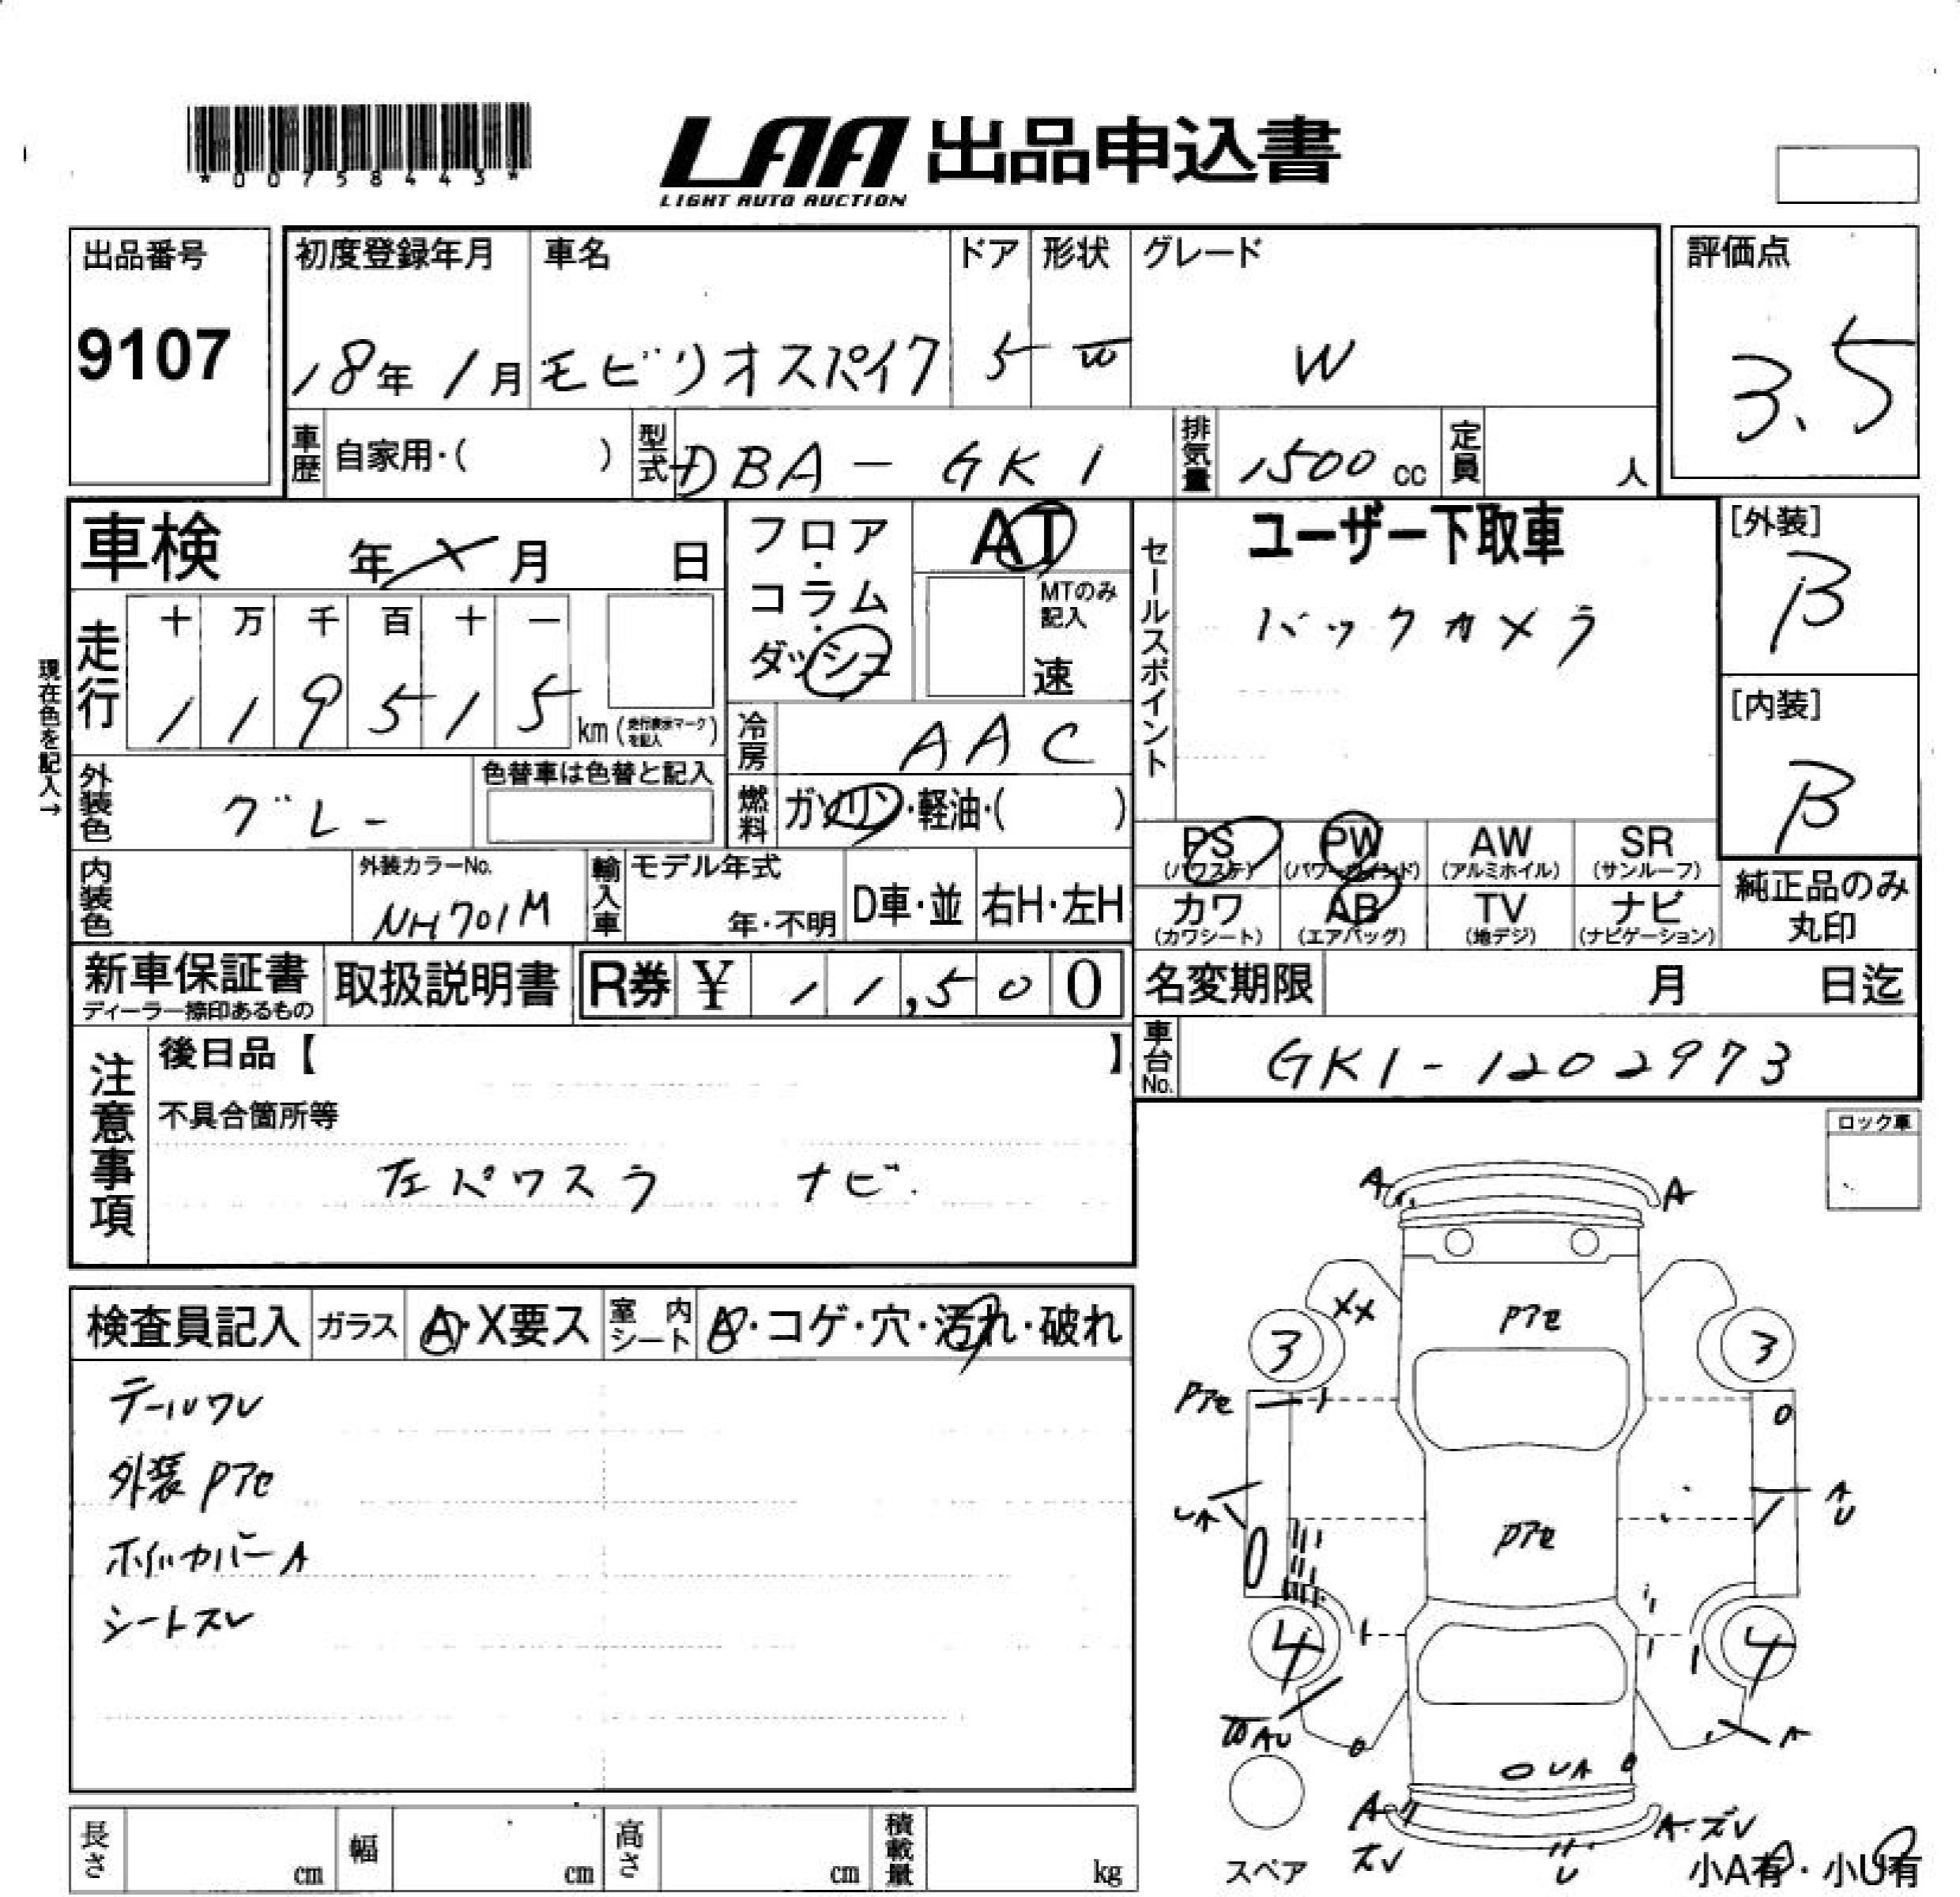 *00758443*
LAA 出品申込書
LIGHT AUTO AUCTION
出品番号
9107
初度登録年月
18年 1月
車名
モビリオスパイク
ドア
5
形状
W
グレード
W
評価点
3.5
車歴 自家用・( )
型式 DBA-GK1
排気量 1500 cc
定員 人
車検 年 月 日
走行
十 万 千 百 十 一
1 1 9 5 1 5 km (走行表示マークを記入)
現在色を記入→
外装色 グレー
色替車は色替と記入
内装色
外装カラーNo.
NH701M
フロア・コラム・ダッシュ
AT
MTのみ記入
速
冷房 AAC
燃料 ガソリン・軽油・( )
輸入車 モデル年式
年・不明
D車・並
右H・左H
セールスポイント
ユーザー下取車
バックカメラ
[外装]
B
[内装]
B
PS (パワステ)
PW (パワーウインド)
AW (アルミホイル)
SR (サンルーフ)
カワ (カワシート)
AB (エアバッグ)
TV (地デジ)
ナビ (ナビゲーション)
純正品のみ丸印
新車保証書
ディーラー捺印あるもの
取扱説明書
R券 ¥ 11,500
名変期限 月 日迄
車台No. GK1-1202973
注意事項
後日品【 】
不具合箇所等
左パワスラ ナビ
ロック車
検査員記入
ガラス A・X要ス
室内シート A・コゲ・穴・汚れ・破れ
テールワレ
外装Pアセ
ホイルカバーA
シートスレ
A A
XX
Pアセ
3 3
Pアセ
UA
AU
Pアセ
4 4
WAU
A
UA
A
ズレ
U
A・ズレ
スペア
小A有・小U有
長さ cm
幅 cm
高さ cm
積載量 kg